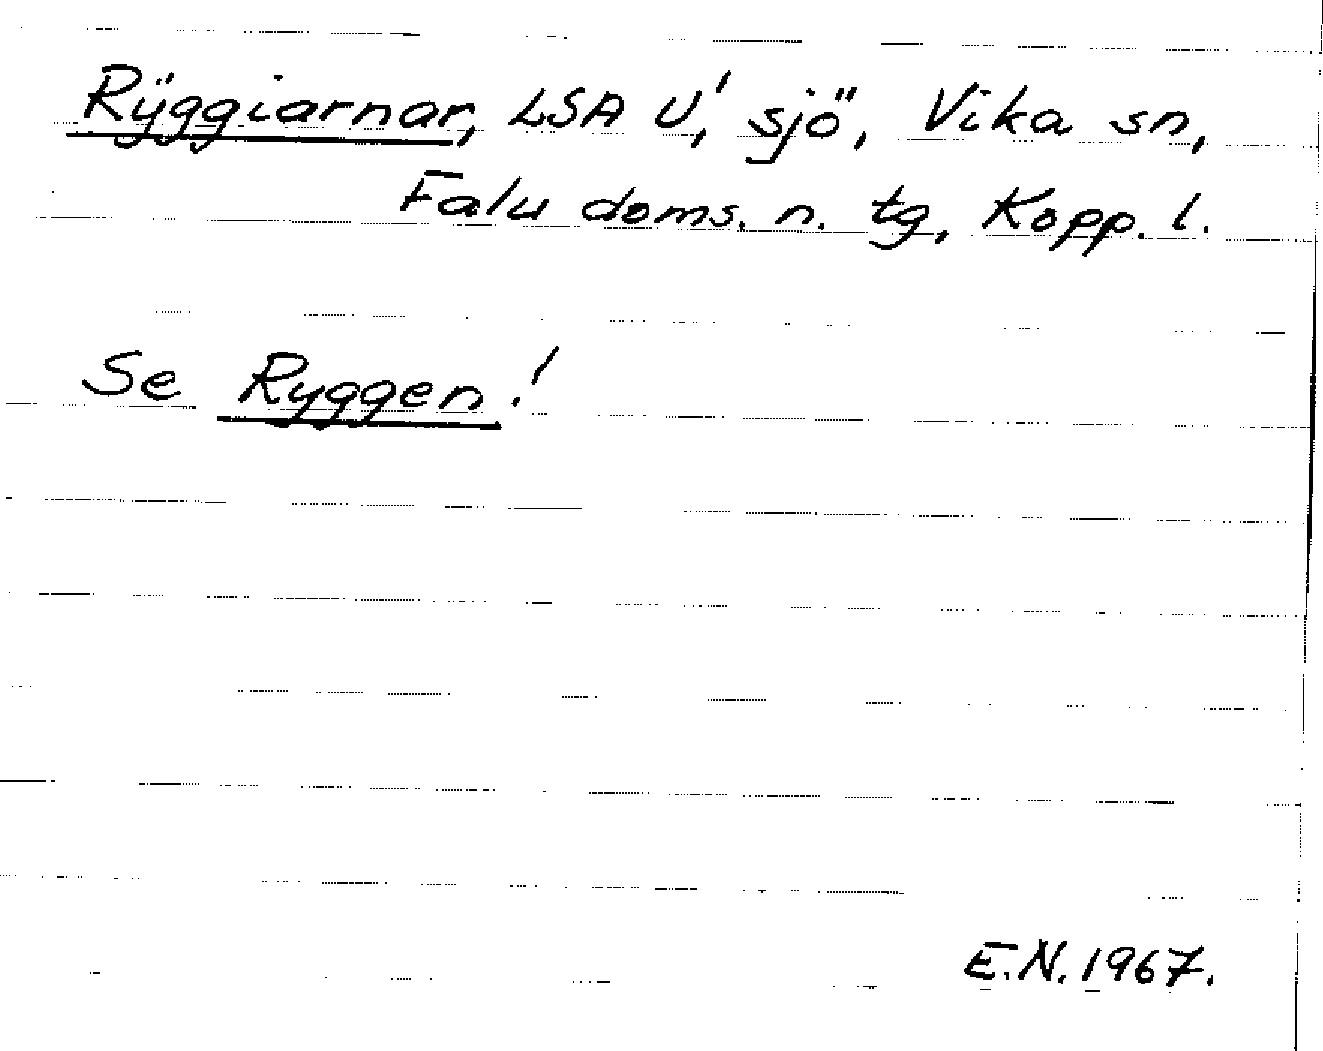 Rÿggiarnar, LSA U', sjö, Vika sn,
Falu doms. n. tg, Kopp. l.
Se Ryggen!
E.N. 1967.